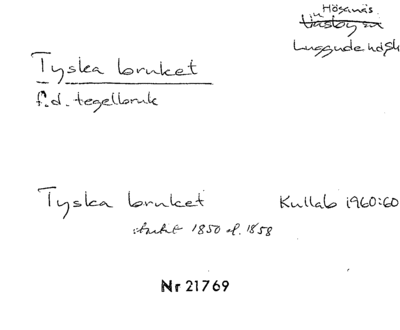 Höganäs
Väsby sn
Luggude hd, Sk
Tyska bruket
f.d. tegelbruk
Tyska bruket Kullab 1960:60
1850 1858
Nr 21769